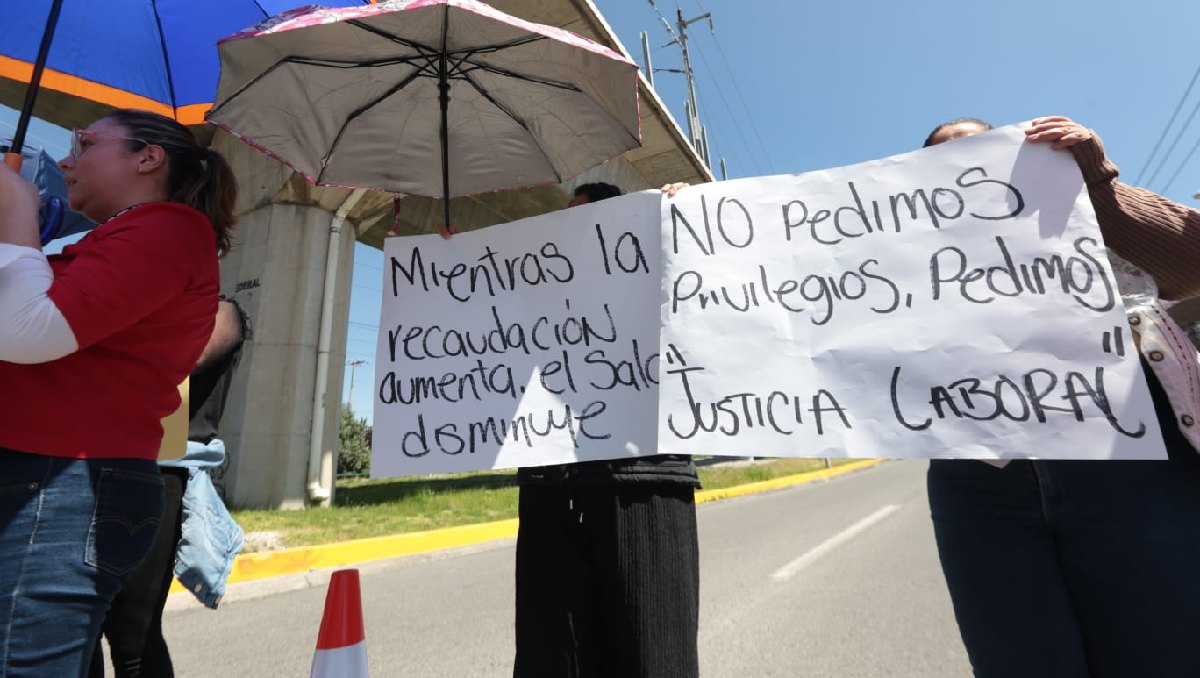 Mientras la
recaudación
aumenta. el Sala
disminuye
NO Pedimos
Privilegios, Pedimos
"JUSTICIA LABORAL"